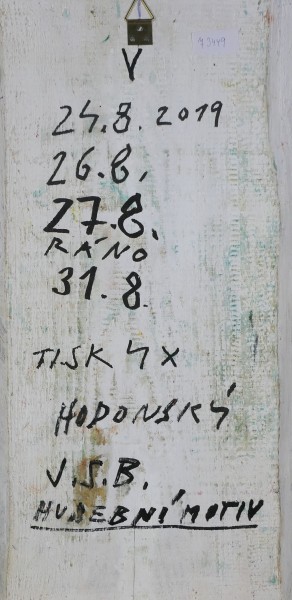 V
24.8. 2019
26.8.
27.8.
RÁNO
31.8.
TISK 4X
HODONSKÝ
J.S.B.
HUDEBNÍ MOTIV